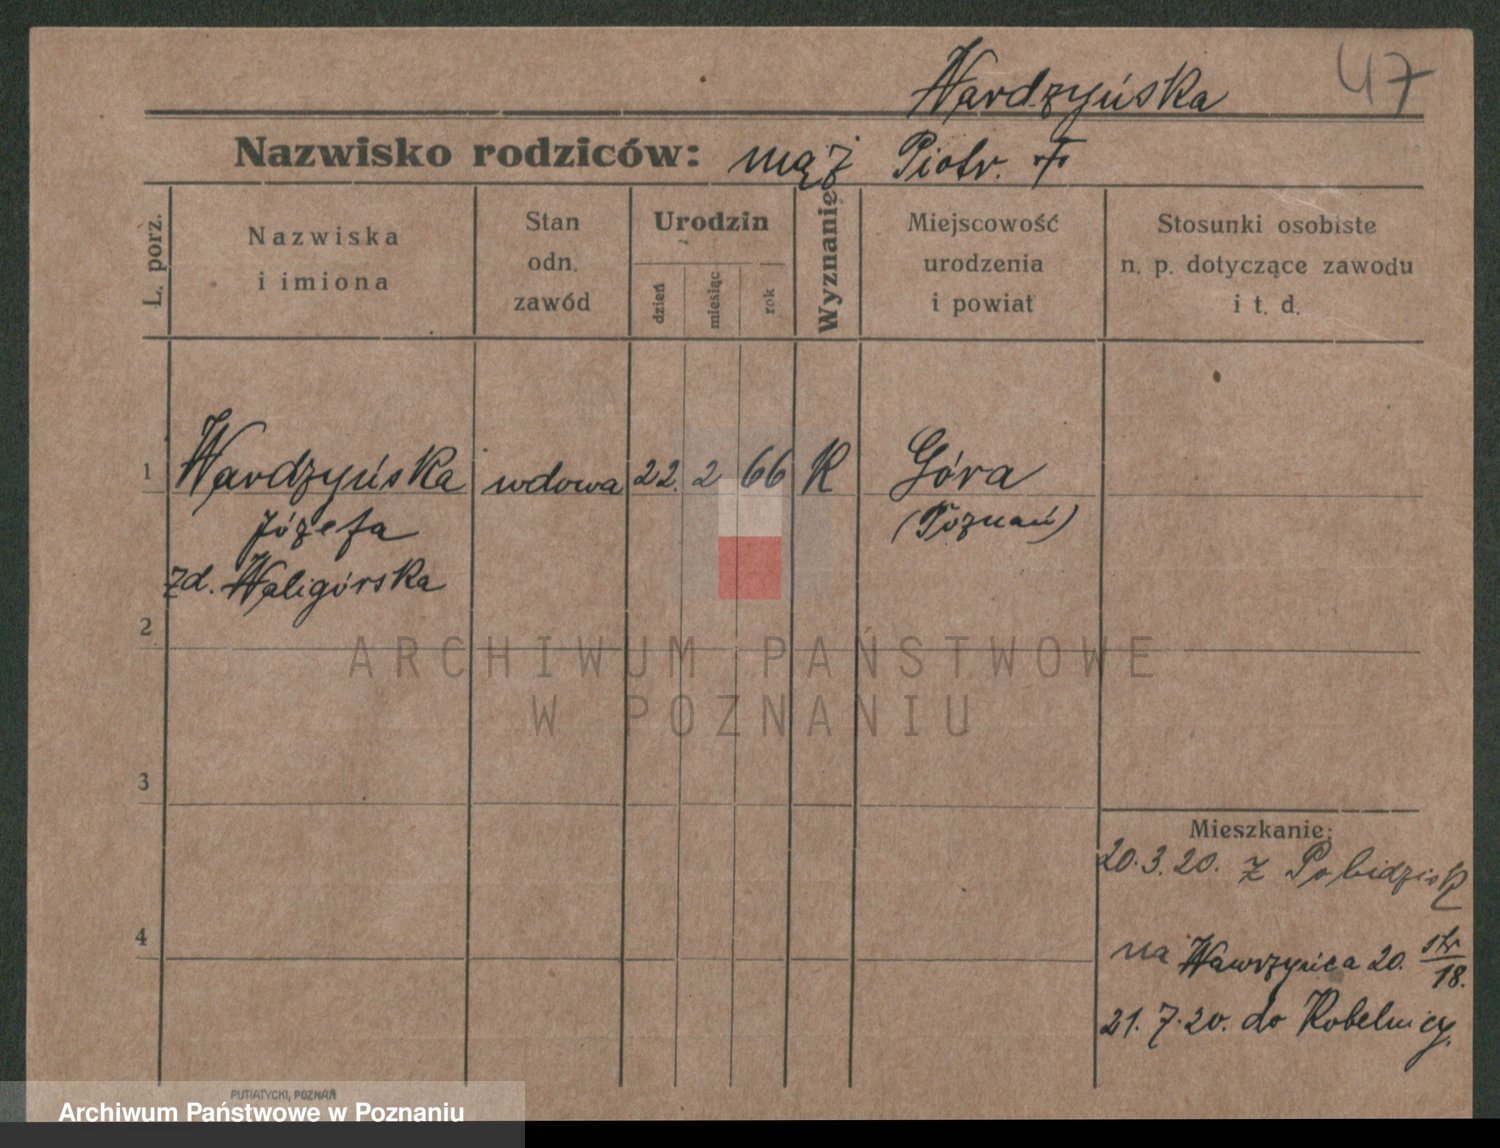 Wardzyńska 47
Nazwisko rodziców: mąż Piotr. +
L. porz.
Nazwiska
i imiona
Stan
odn.
zawód
Urodzin
dzień
miesiąc
rok
Wyznanie
Miejscowość
urodzenia
i powiat
Stosunki osobiste
n. p. dotyczące zawodu
i t. d.
1 Wardzyńska wdowa 22. 2 66 K Góra
Józefa (Poznań)
zd. Waligórska
2
ARCHIWUM PAŃSTWOWE
W POZNANIU
3
Mieszkanie:
20.3.20. z Pobiedzisk
4
na Wawrzyńca 20. str 18.
21.7.20. do Kobelnicy.
PUTIATYCKI, POZNAŃ
Archiwum Państwowe w Poznaniu